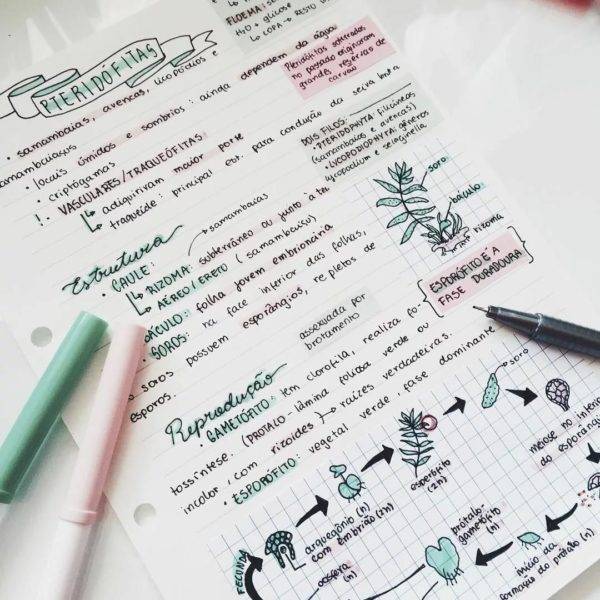 FLOEMA:
H2O + glicose
↳ COPA → RESTO
PTERIDÓFITAS
• samambaias, avencas, licopódios e
samambaiaçus
• locais úmidos e sombrios: ainda dependem da água
• criptógamas
!. VASCULARES/TRAQUEÓFITAS
↳ adiquiriram maior porte
↳ traqueíde: principal est. para condução da seiva bruta
Pteridófitas soterradas
no passado originaram
grandes regiões de
carvão
DOIS FILOS:
• PTERIDOPHYTA: filicíneas
(samambaias e avencas)
• LYCOPODIOPHYTA: gêneros
lycopodium e selaginella
Estrutura
• CAULE: samambaias
↳ RIZOMA: subterrâneo ou junto à ter
↳ AÉREO/ERETO (samambaiaçu)
BÁCULO: folha jovem embrionária
• SOROS: na face inferior das folhas,
os soros possuem esporângios, repletos de
esporos.
assexuada por
brotamento
soro
báculo
rizoma
ESPORÓFITO É A
FASE DURADOURA
Reprodução
GAMETÓFITO: tem clorofila, realiza fo-
tossíntese. (PROTALO - lâmina foliosa verde ou
incolor, com rizoides) → raízes verdadeiras.
• ESPORÓFITO: vegetal verde, fase dominante
FECUNDA
oosfera
(n)
arquegônio (n)
com embrião (2n)
esporófito
(2n)
soro
meiose no interi
do esporângi
início da
formação do prótalo (n)
prótalo-
gametófito
(n)